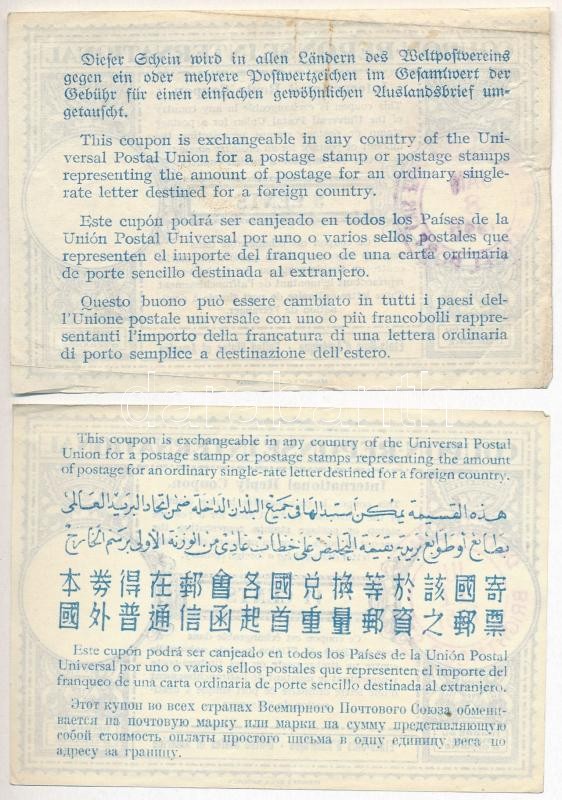 Dieser Schein wird in allen Ländern des Weltpostvereins
gegen ein oder mehrere Postwertzeichen im Gesamtwert der
Gebühr für einen einfachen gewöhnlichen Auslandsbrief um-
getauscht.
This coupon is exchangeable in any country of the Uni-
versal Postal Union for a postage stamp or postage stamps
representing the amount of postage for an ordinary single-
rate letter destined for a foreign country.
Este cupón podrá ser canjeado en todos los Países de la
Unión Postal Universal por uno o varios sellos postales que
representen el importe del franqueo de una carta ordinaria
de porte sencillo destinada al extranjero.
Questo buono può essere cambiato in tutti i paesi del-
l'Unione postale universale con uno o più francobolli rappre-
sentanti l'importo della francatura di una lettera ordinaria
di porto semplice a destinazione dell'estero.
darabanth
This coupon is exchangeable in any country of the Universal Postal
Union for a postage stamp or postage stamps representing the amount
of postage for an ordinary single-rate letter destined for a foreign country.
هذه القسيمة يمكن استبدالها في جميع البلدان الداخلة ضمن اتحاد البريد العالمى
بطابع او طوابع بريد بقيمة التخليص على خطاب عادى من الوزنة الأولى برسم الخارج
本券得在郵會各國兌換等於該國寄
國外普通信函起首重量郵資之郵票
Este cupón podrá ser canjeado en todos los Países de la Unión Postal
Universal por uno o varios sellos postales que representen el importe del
franqueo de una carta ordinaria de porte sencillo destinada al extranjero.
Этот купон во всех странах Всемирного Почтового Союза обмени-
вается на почтовую марку или марки на сумму представляющую
собой стоимость оплаты простого письма в одну единицу веса по
адресу за границу.